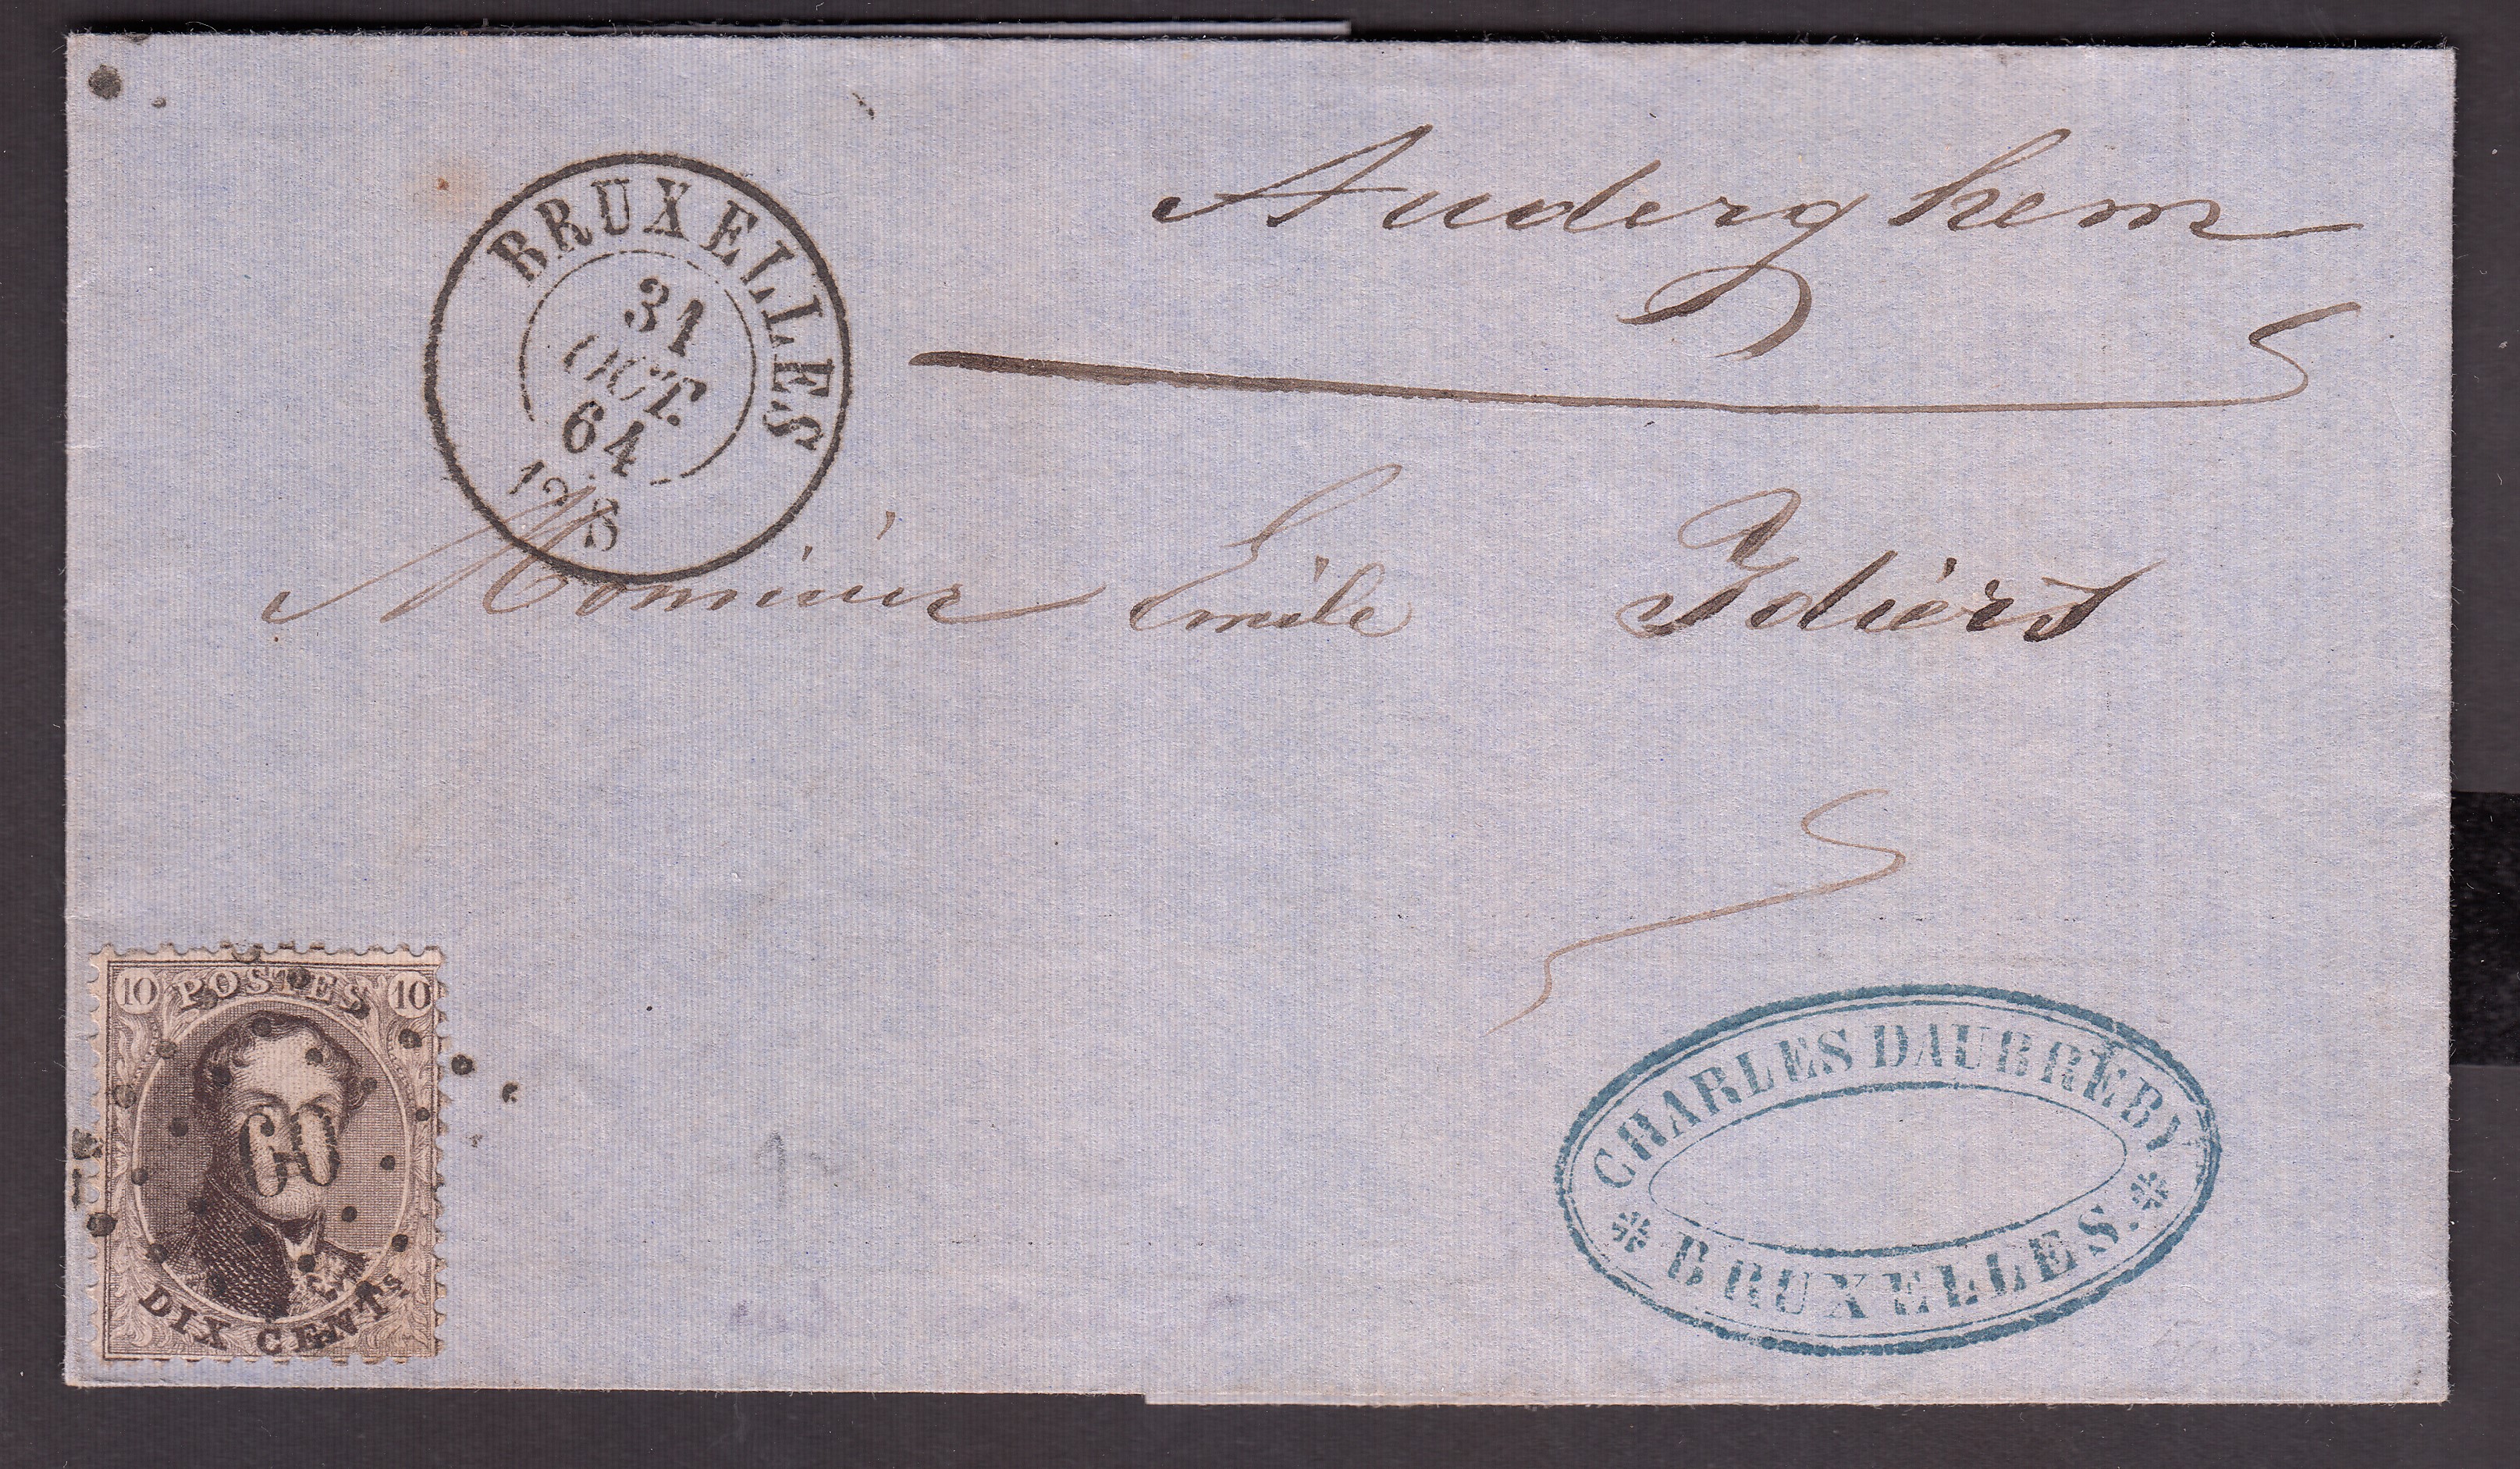 Auderghem
BRUXELLES
31
OCT.
64
12 S
Monsieur Emile Idiers
10 POSTES 10
60
DIX CENTs
CHARLES DAUBRÉBY
BRUXELLES.